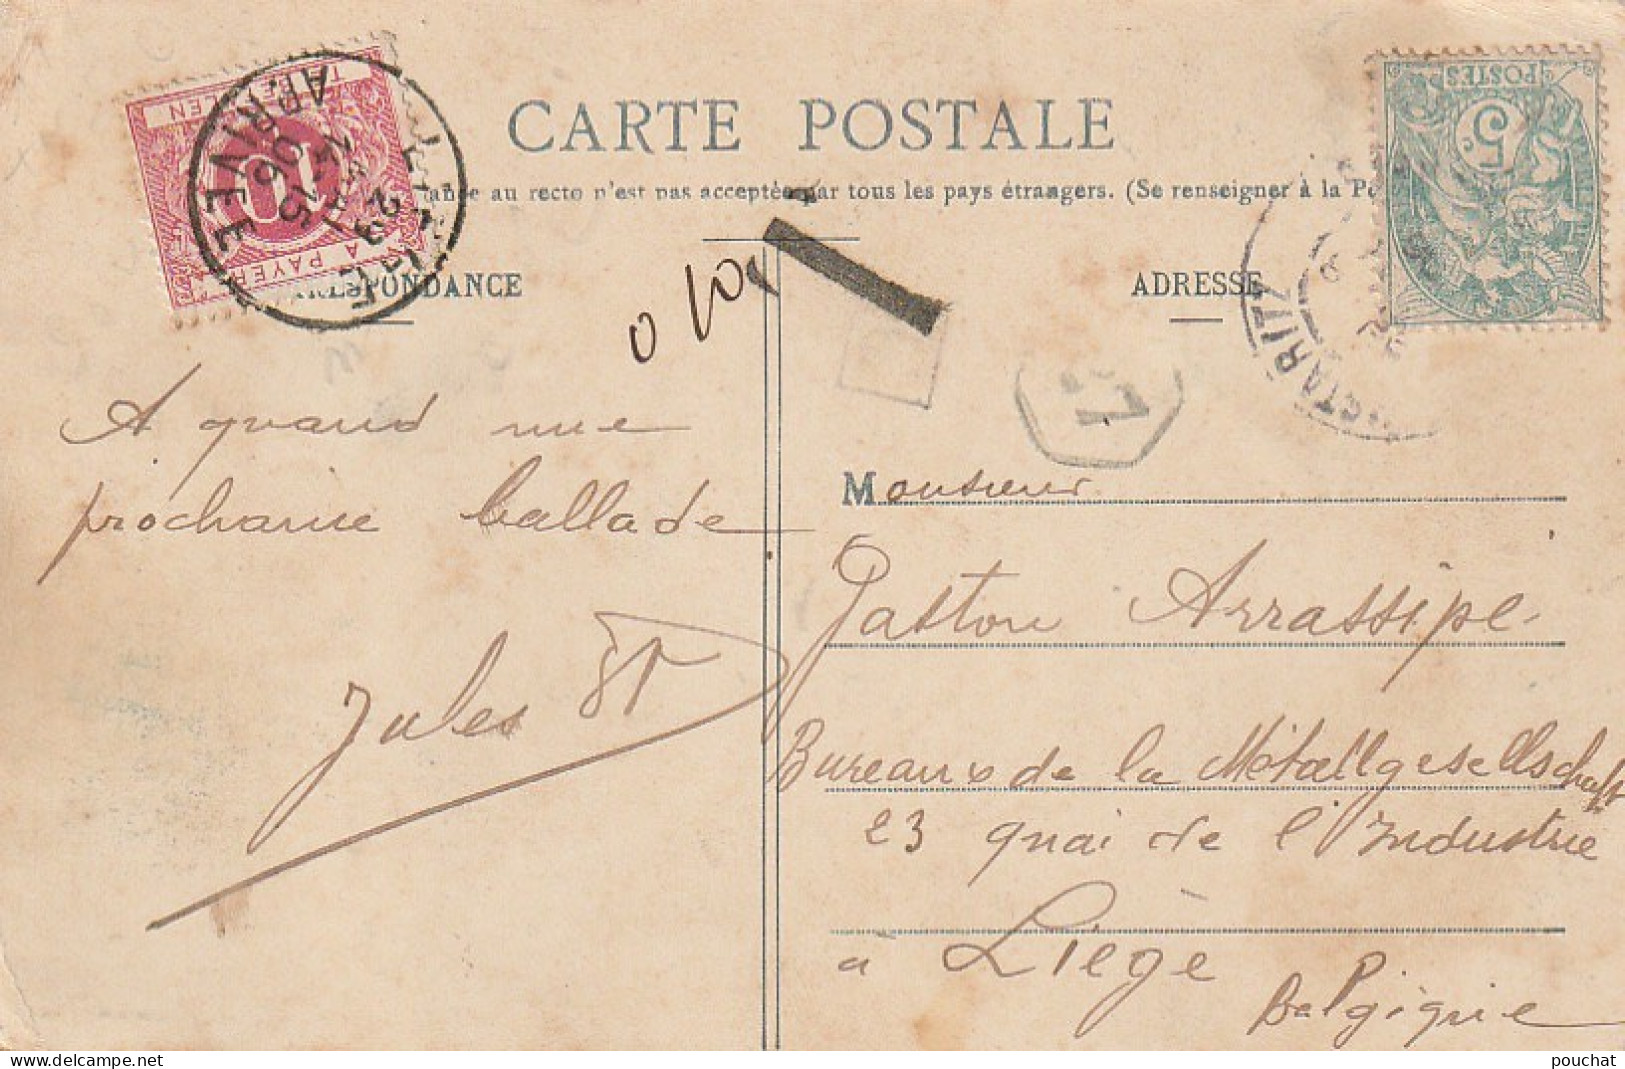 CARTE POSTALE
au recto n'est pas acceptée par tous les pays étrangers. (Se renseigner à la
RESPONDANCE
ADRESSE
POSTES
5 c.
TE BETALEN
10
A PAYER
LIEGE
29
15
06
APRIVEE
0,10
USTARITZ
A quand une
prochaine ballade
Jules
Monsieur
Gaston Arrassipe
Bureaux de la Métallgesellschaft
23 quai de l'Industrie
a Liège
Belgique
www.delcampe.net
pouchat